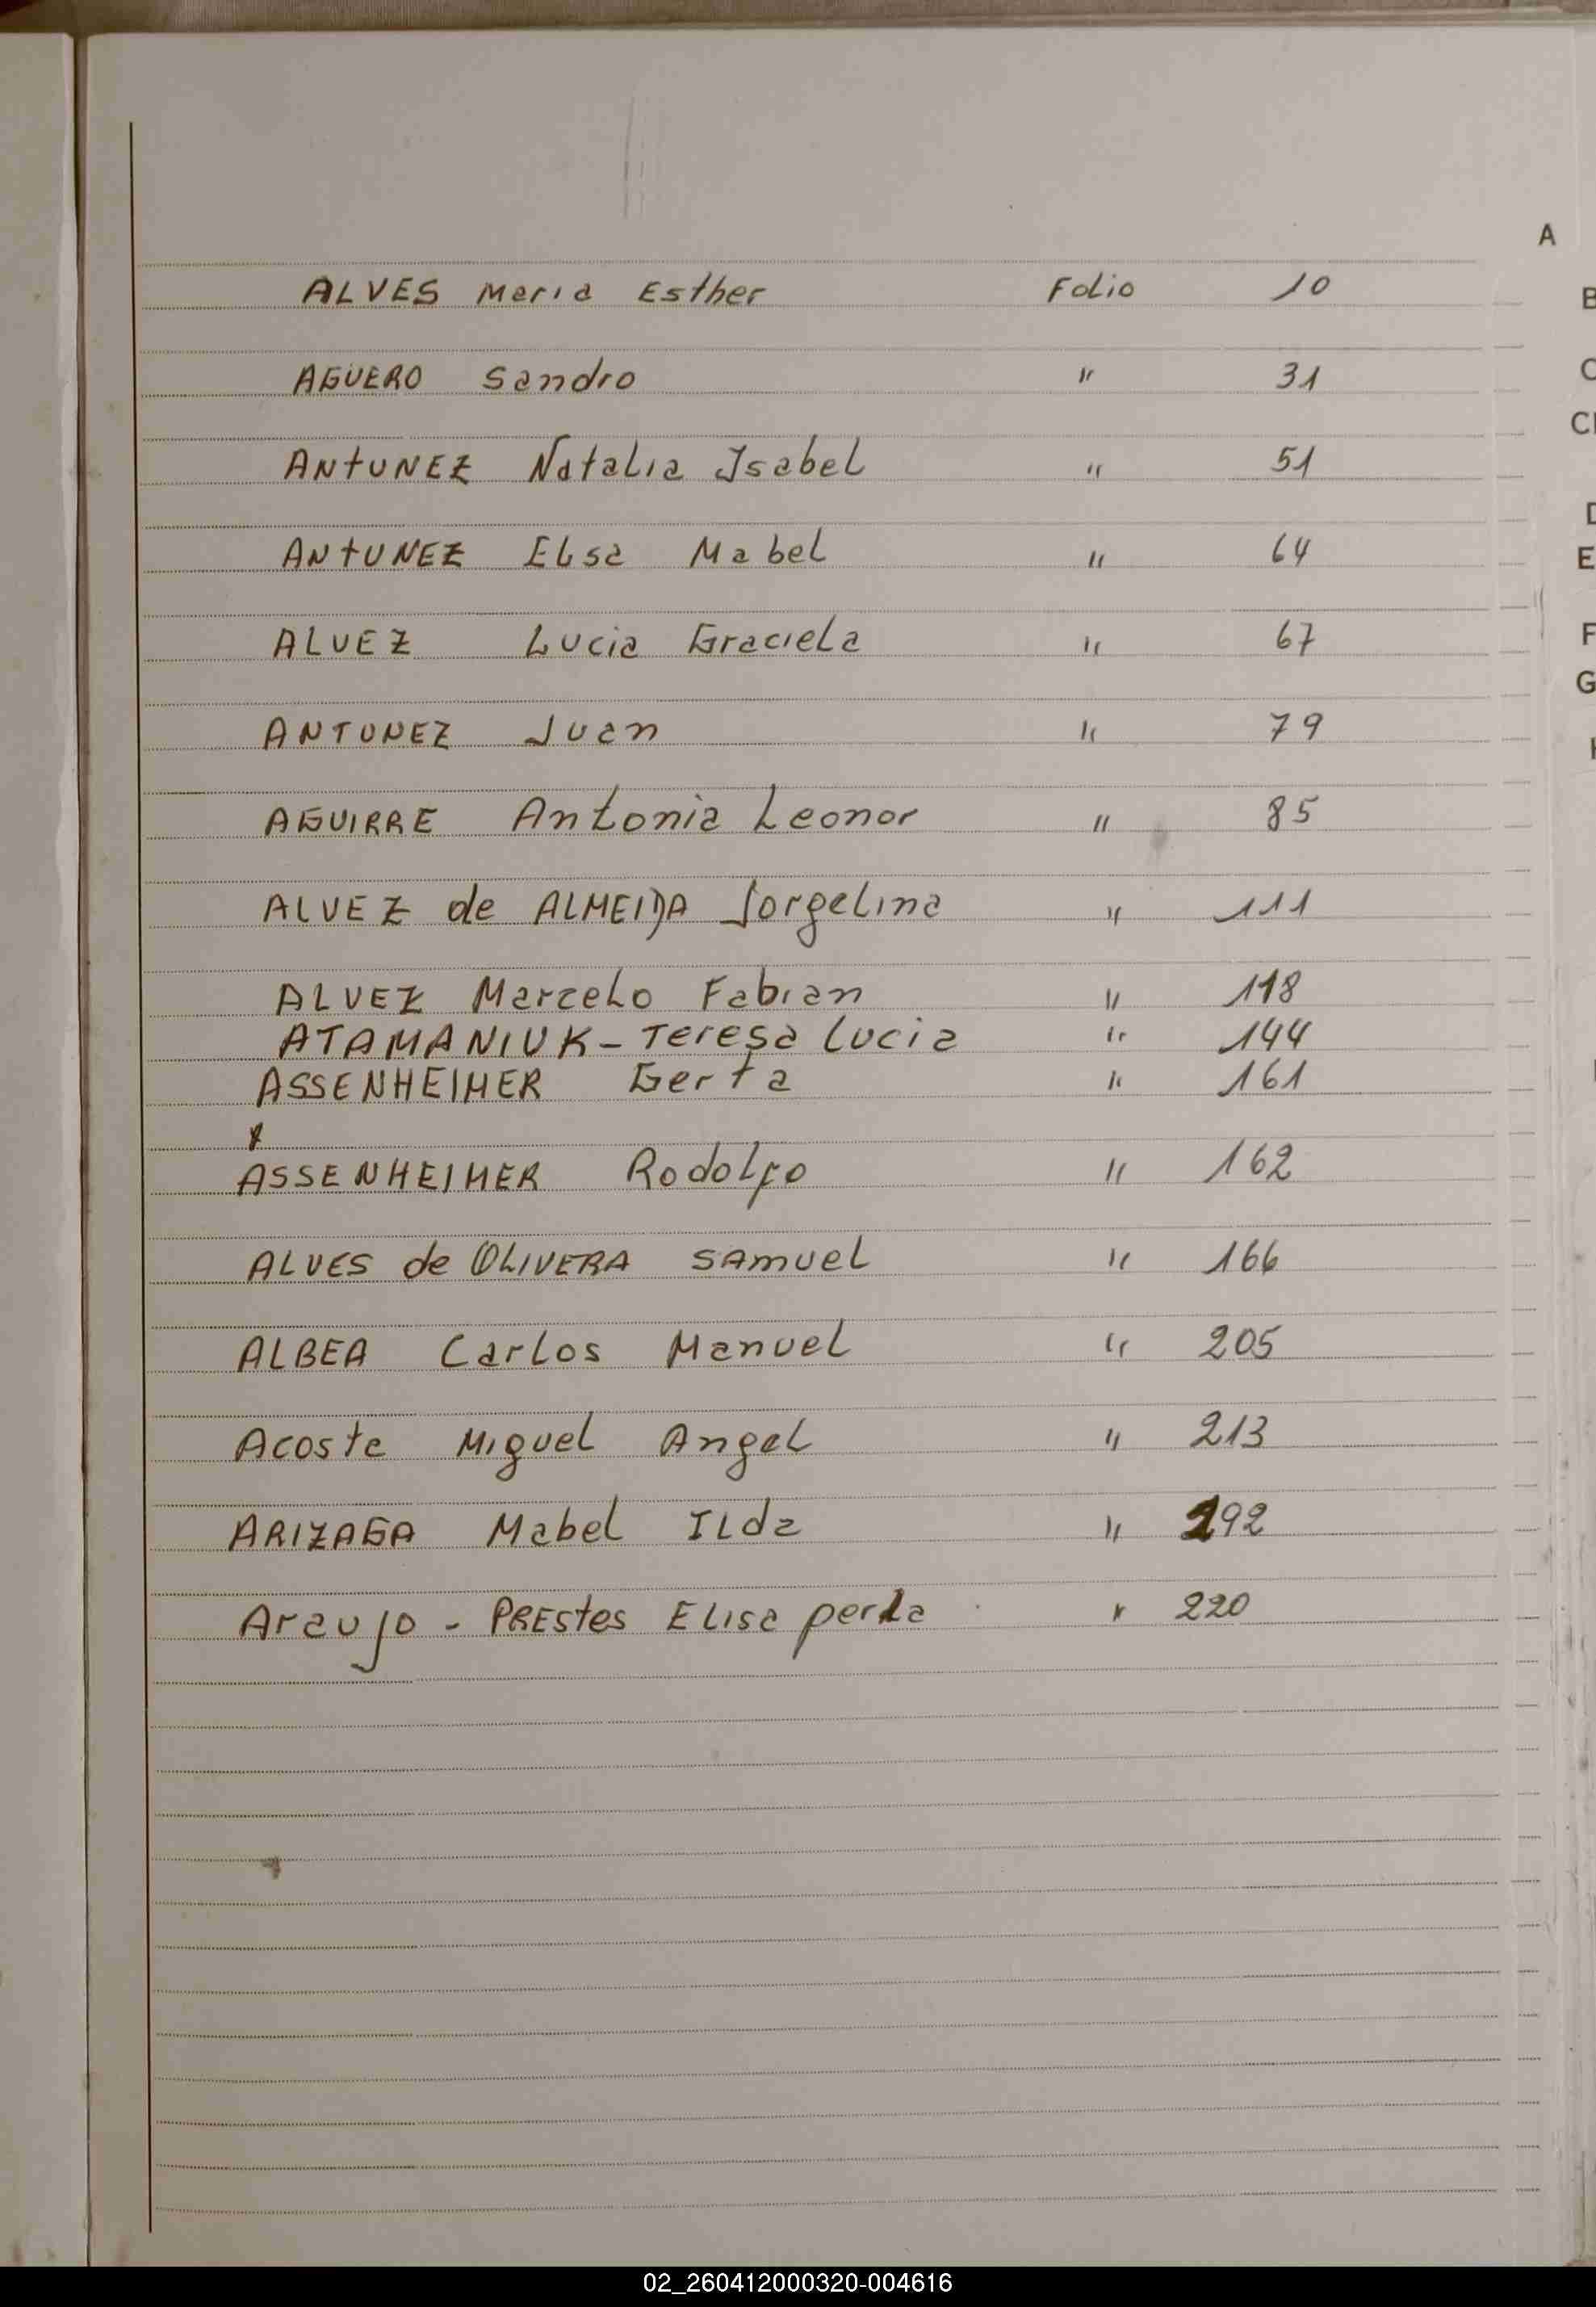 A
ALVES Maria Esther Folio 10
B
AGUERO Sandro " 31
C
ANTUNEZ Natalia Isabel " 51
D
ANTUNEZ Elsa Mabel " 64
E
ALVEZ Lucia Graciela " 67
F
G
ANTUNEZ Juan " 79
AGUIRRE Antonia Leonor " 85
ALVEZ de ALMEIDA Jorgelina " 111
ALVEZ Marcelo Fabian " 118
ATAMANIUK - Teresa Lucia " 144
ASSENHEIMER Gerta " 161
ASSENHEIMER Rodolfo " 162
ALVES de OLIVERA SAMUEL " 166
ALBEA Carlos Manuel " 205
Acosta Miguel Angel " 213
ARIZAGA Mabel ILda " 292
Araujo - PREStes ELisa perla " 220
02_260412000320-004616